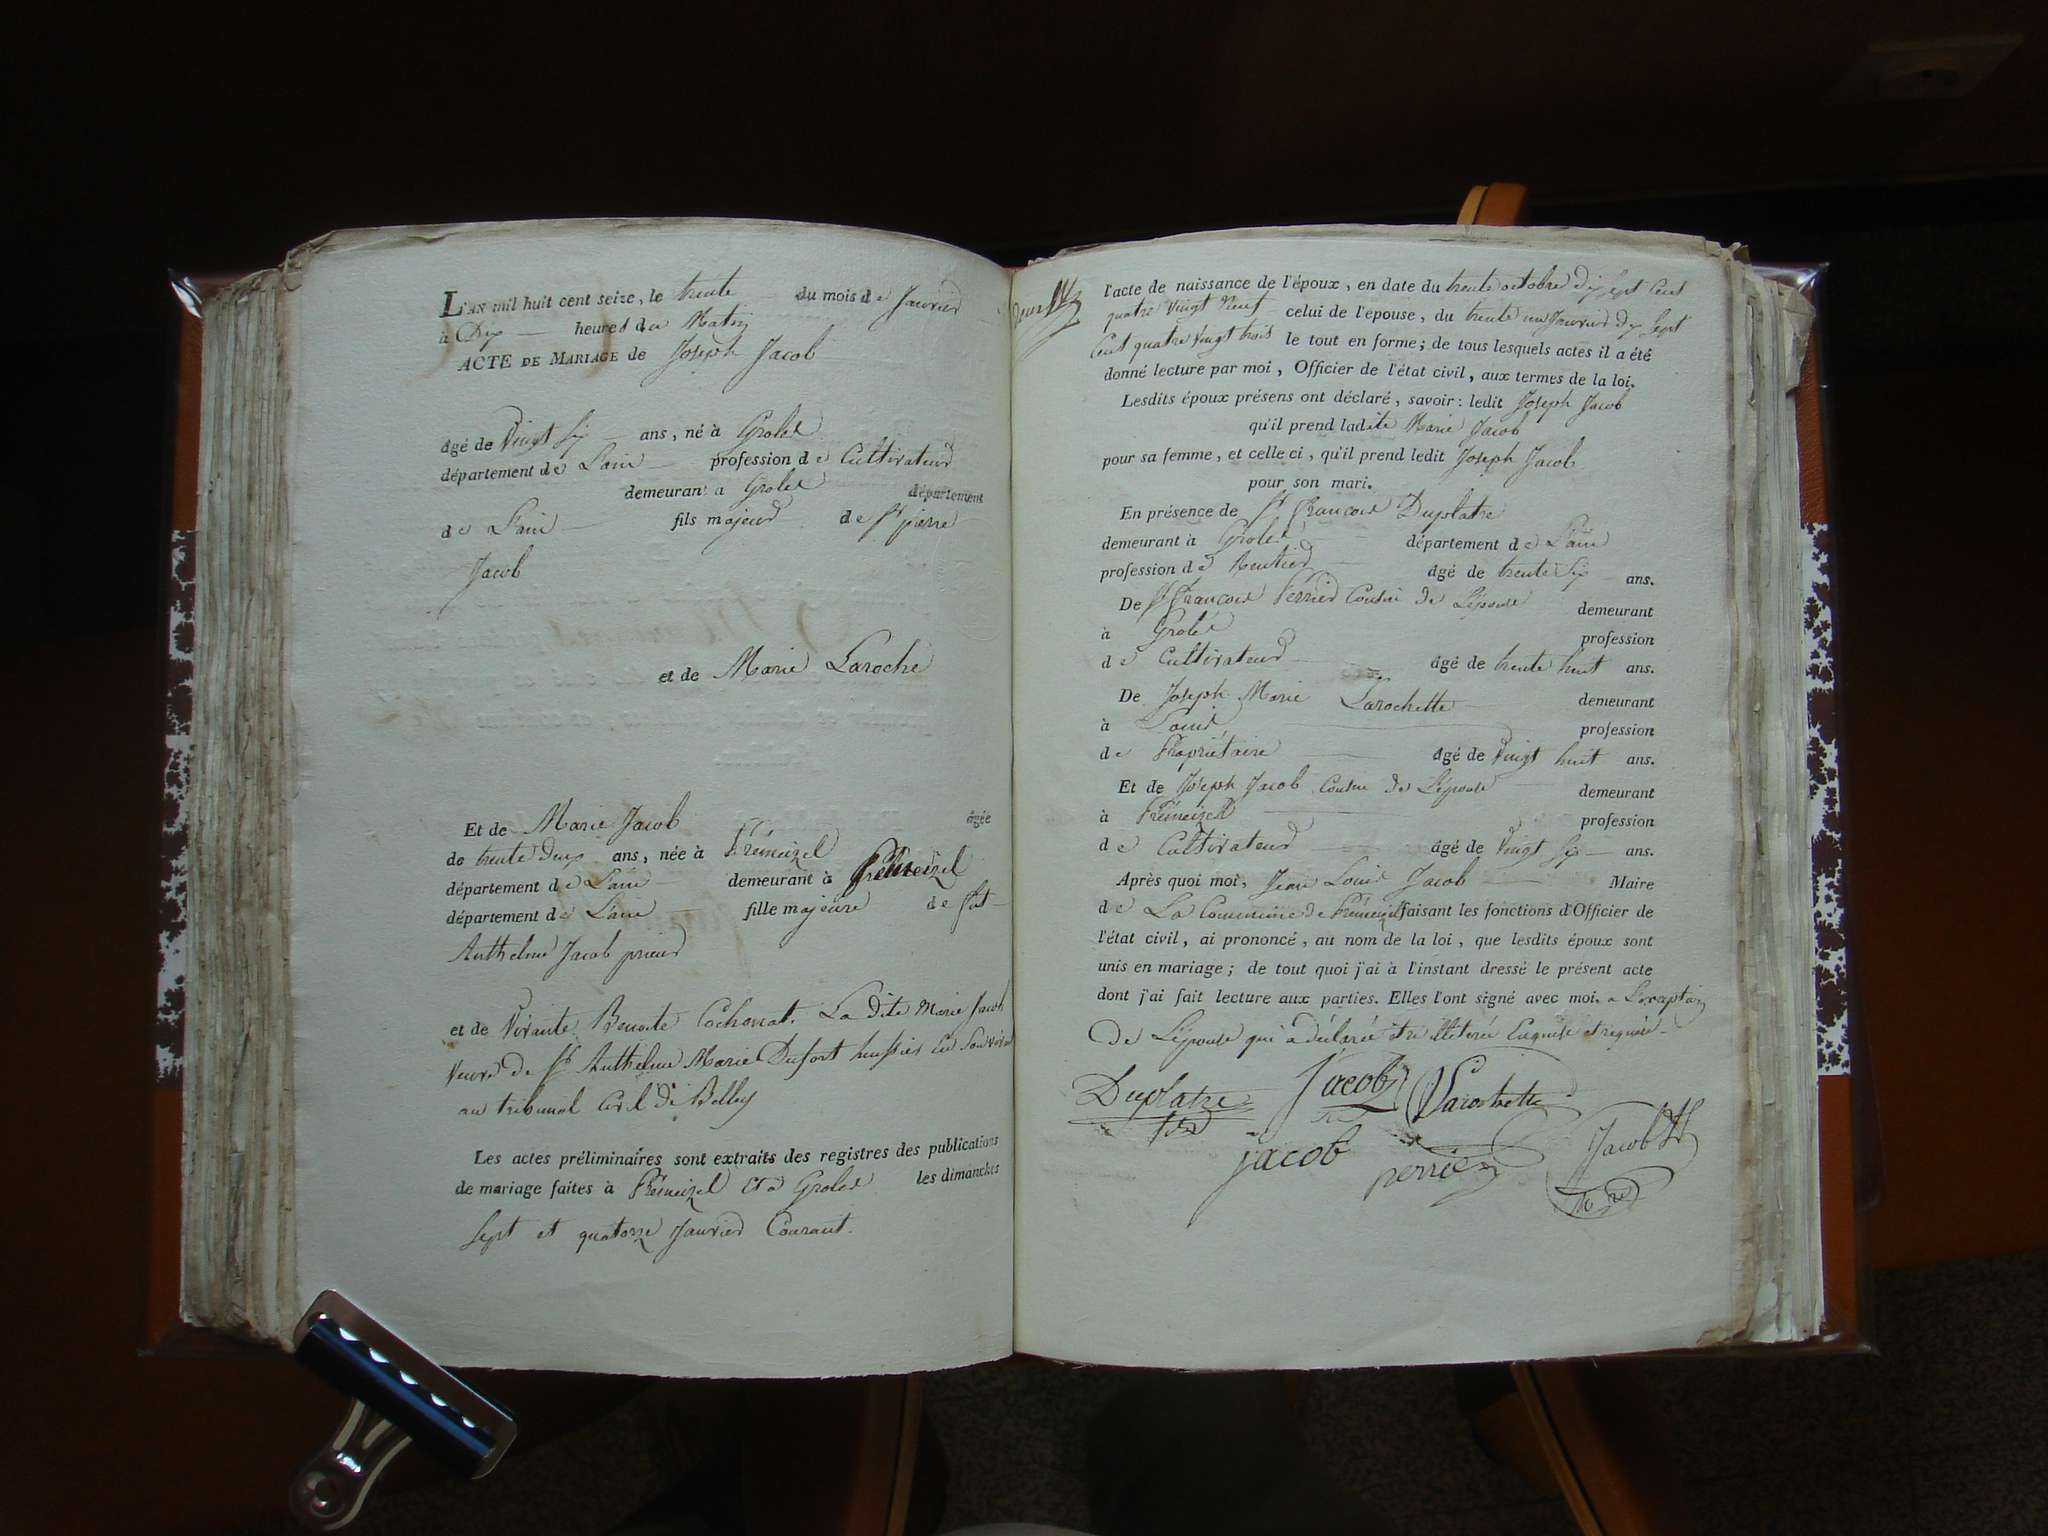 L'AN mil huit cent seize, le trente du mois de Janvier
à Dix heures du Matin
ACTE DE MARIAGE de Joseph Jacob
âgé de Vingt Six ans, né à Groleé
département de L'ain profession de Cultivateur
demeurant à Groleé département
de L'ain fils majeur de Sr pierre
Jacob
et de Marie Laroche
Et de Marie Jacob âgée
de trente Deux ans, née à Prémeizel
département de L'ain demeurant à Prémeizel
département de L'ain fille majeure de
Anthelme Jacob prieur
et de Vivante Benoite Cochonat. La dite Marie Jacob
Veuve de Sr Anthelme Marie Dufort huissier
au tribunal Civil de Belley
Les actes préliminaires sont extraits des registres des publications
de mariage faites à Prémeizel Et à Groleé les dimanches
Sept et quatorze Janvier Courant.
l'acte de naissance de l'époux, en date du trente octobre dix Sept Cent
quatre Vingt Neuf celui de l'epouse, du trente un Janvier dix Sept
Cent quatre Vingt trois le tout en forme; de tous lesquels actes il a été
donné lecture par moi, Officier de l'état civil, aux termes de la loi.
Lesdits époux présens ont déclaré, savoir: ledit Joseph Jacob
qu'il prend ladite Marie Jacob
pour sa femme, et celle ci, qu'il prend ledit Joseph Jacob
pour son mari.
En présence de Sr François Duplatre
demeurant à Groleé département de L'ain
profession de Rentier âgé de trente Six ans.
De Sr François Perrier Cousin de L'épouse demeurant
à Groleé profession
de Cultivateur âgé de trente huit ans.
De Joseph Marie Larochette demeurant
à profession
de Propriétaire âgé de Vingt huit ans.
Et de Joseph Jacob Cousin de L'épouse demeurant
à Prémeizel profession
de Cultivateur âgé de Vingt Six ans.
Après quoi moi, Jean Louis Jacob Maire
de La Commune de Prémeizel faisant les fonctions d'Officier de
l'état civil, ai prononcé, au nom de la loi, que lesdits époux sont
unis en mariage; de tout quoi j'ai à l'instant dressé le présent acte
dont j'ai fait lecture aux parties. Elles l'ont signé avec moi. a L'exception
De L'épouse qui a déclaré être illiterée Enquise et requise
Duplatre Jacob Larochette
jacob perrier Jacob